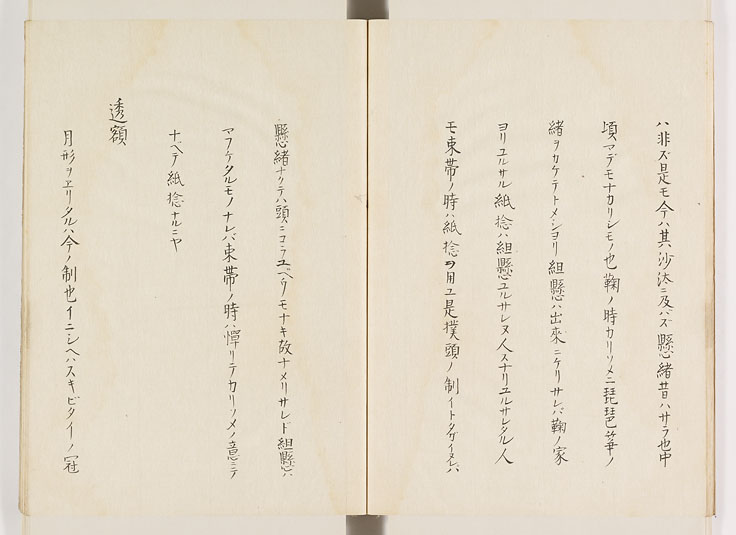 ハ非ズ是モ今ハ其沙汰ニ及バズ懸緒昔ハサラ也中
頃マデモナカリシモノ也鞠ノ時カリソメニ琵琶箏ノ
緒ヲカケテトメシヨリ組懸ハ出來ニケリサレバ鞠ノ家
ヨリユルサル紙捻ハ組懸ユルサレヌ人スナリユルサレタル人
モ束帯ノ時ハ紙捻ヲ用ユ是撲頭ノ制イトタガイヌレバ
懸緒ナクテハ頭ニコラユベクモナキ故ナメリサレド組懸ハ
マフケタルモノナレバ束帯ノ時ハ憚リテカリソメノ意ニテ
ナベテ紙捻ナルニヤ
透額
月形ヲヱリタルハ今ノ制也イニシヘハスキビタイノ冠